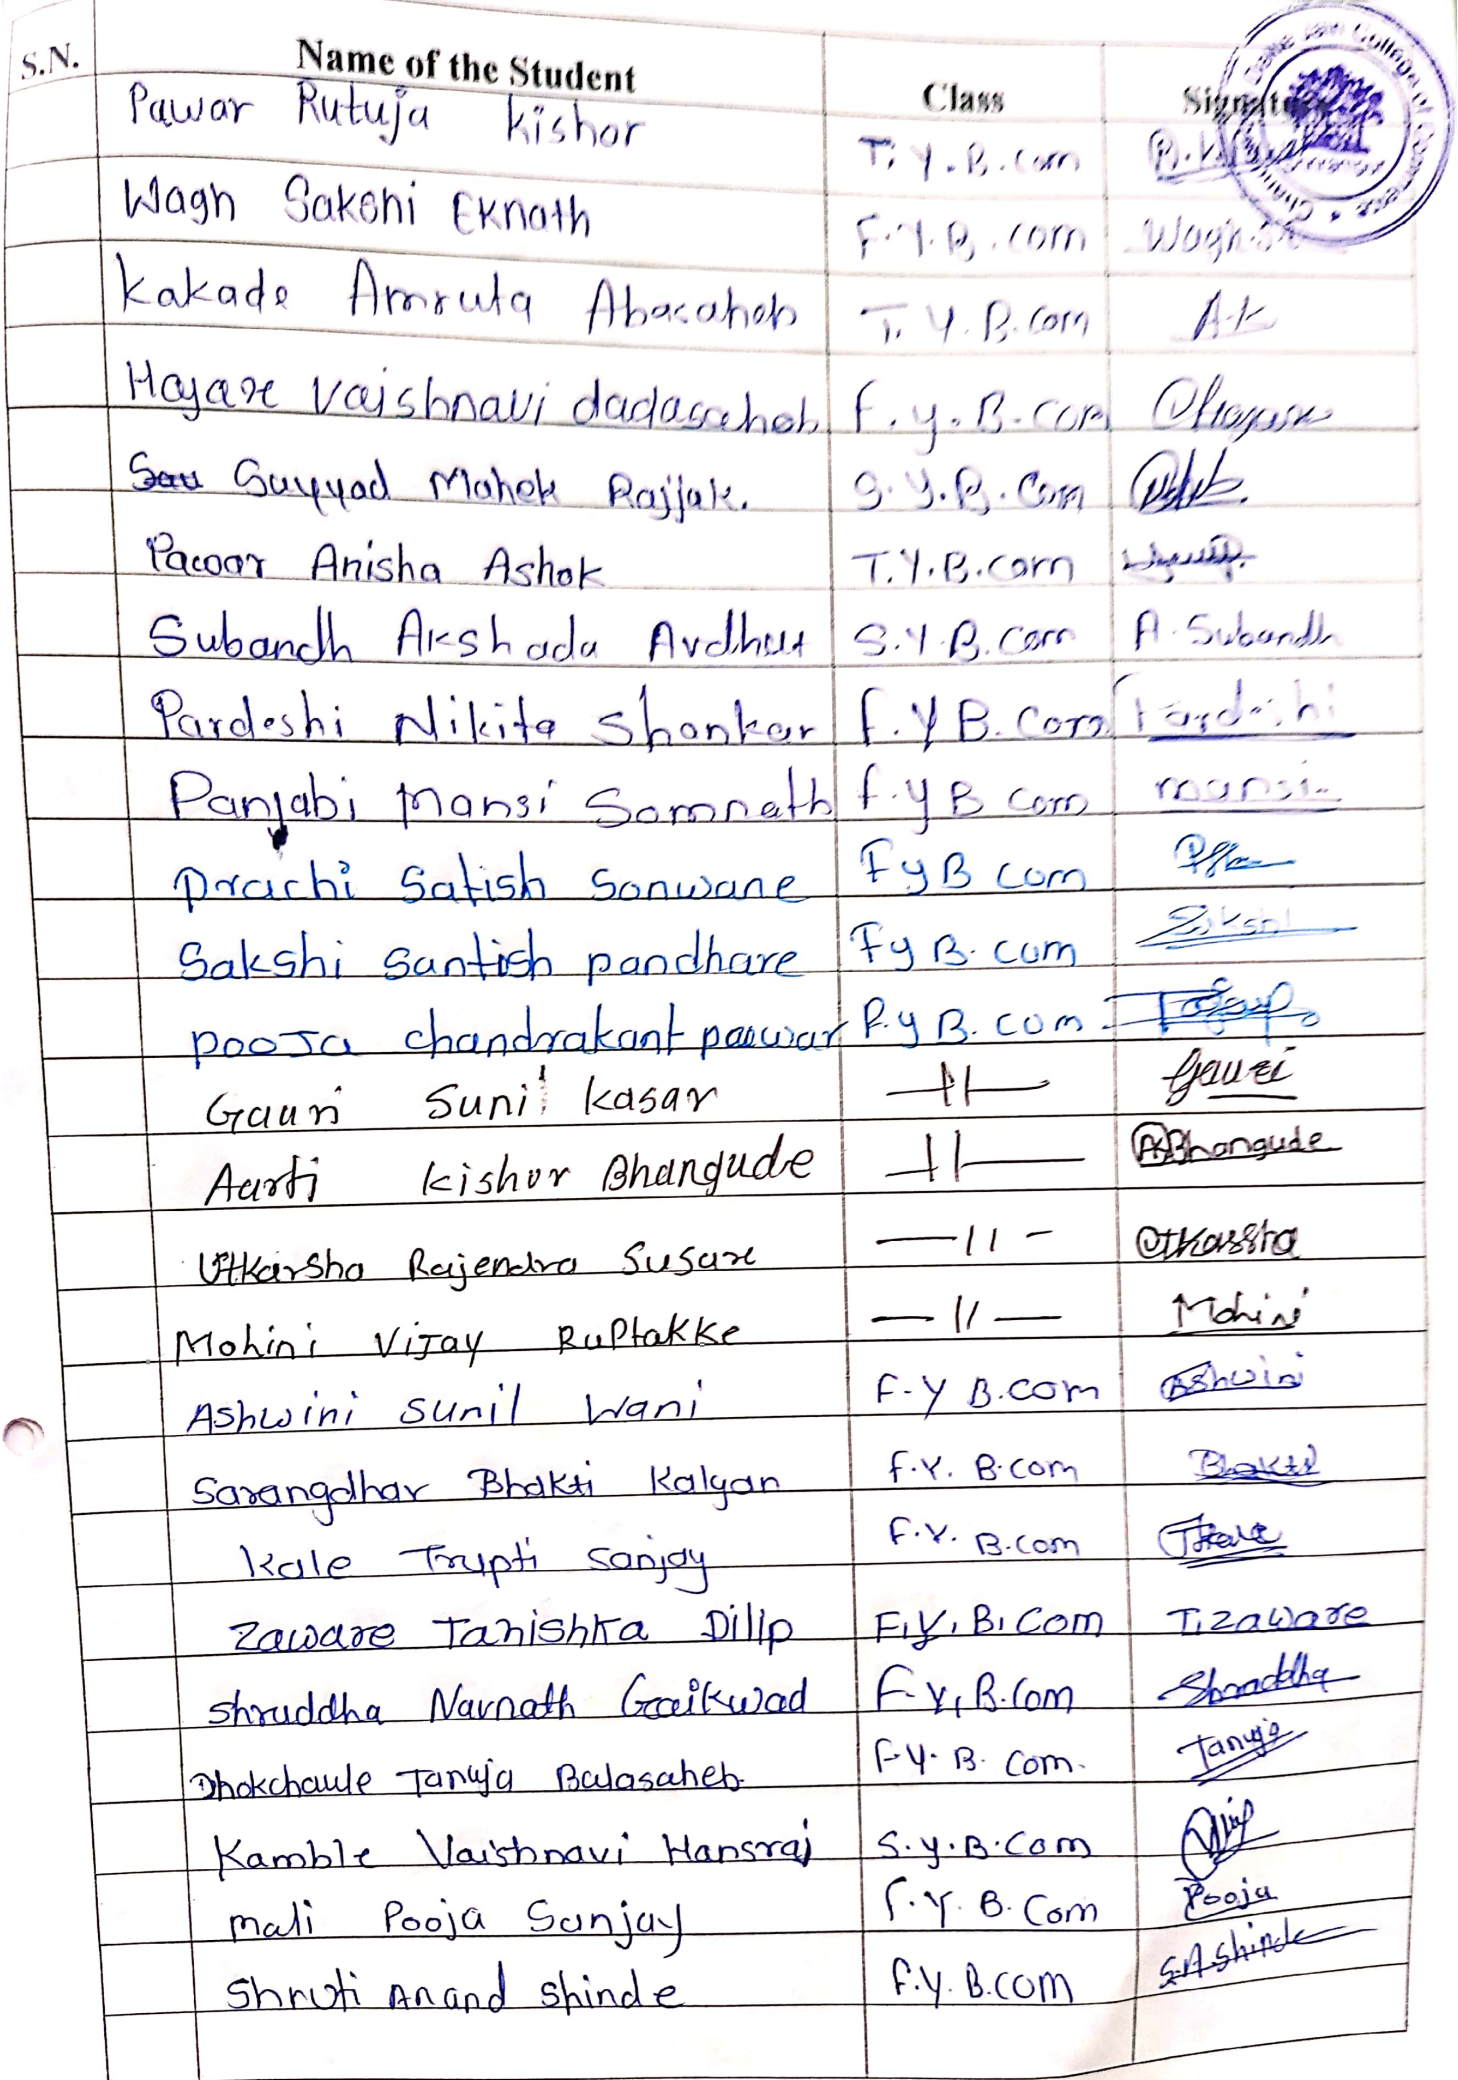 S.N. Name of the Student Class Signature
Pawar Rutuja Kishor T.Y.B.com
Wagh Sakshi Eknath F.Y.B.com Wagh
Kakade Amruta Abasaheb T.Y.B.com A.K
Hajare Vaishnavi dadasaheb F.y.B.com
Sayyad Mahek Rajjak. S.Y.B.Com
Pawar Anisha Ashok T.Y.B.com
Subandh Akshada Avdhut S.Y.B.com A.Subandh
Pardeshi Nikita Shankar F.Y B.Com Pardeshi
Panjabi Mansi Somnath F.y B com mansi
Prachi Satish Sonwane Fy B com
Sakshi Santish pandhare Fy B. com Sakshi
Pooja chandrakant pawar F.y B. com
Gauri Sunil Kasar —11— Gauri
Aarti Kishor Bhangude —11— ABhangude
Utkarsha Rajendra Susare —11— Utkarsha
Mohini Vijay Ruptakke —11— Mohini
Ashwini Sunil Wani F.Y B.com Ashwini
Sarangdhar Bhakti Kalyan F.Y. B.com Bhakti
Kale Trupti Sanjay F.Y. B.com
Zaware Tanishka Dilip F.Y.B.Com T.Zaware
Shruddha Navnath Gaikwad F.Y.B.Com Shraddha
Dhokchaule Tanuja Balasaheb F.Y. B. Com. Tanuja
Kamble Vaishnavi Hansraj S.y.B.Com
Mali Pooja Sanjay F.Y. B. Com Pooja
Shruti Anand Shinde F.y. B.com S.A.Shinde